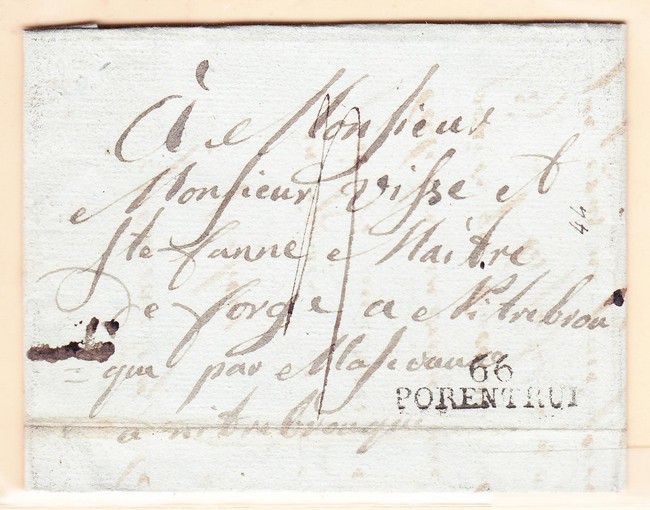 À Monsieur
Monsieur Visse et
Ste fanne Maître
De forge a Nitrebrou
que par Massevaux
66
PORENTRUI
a nitrebrouque
46